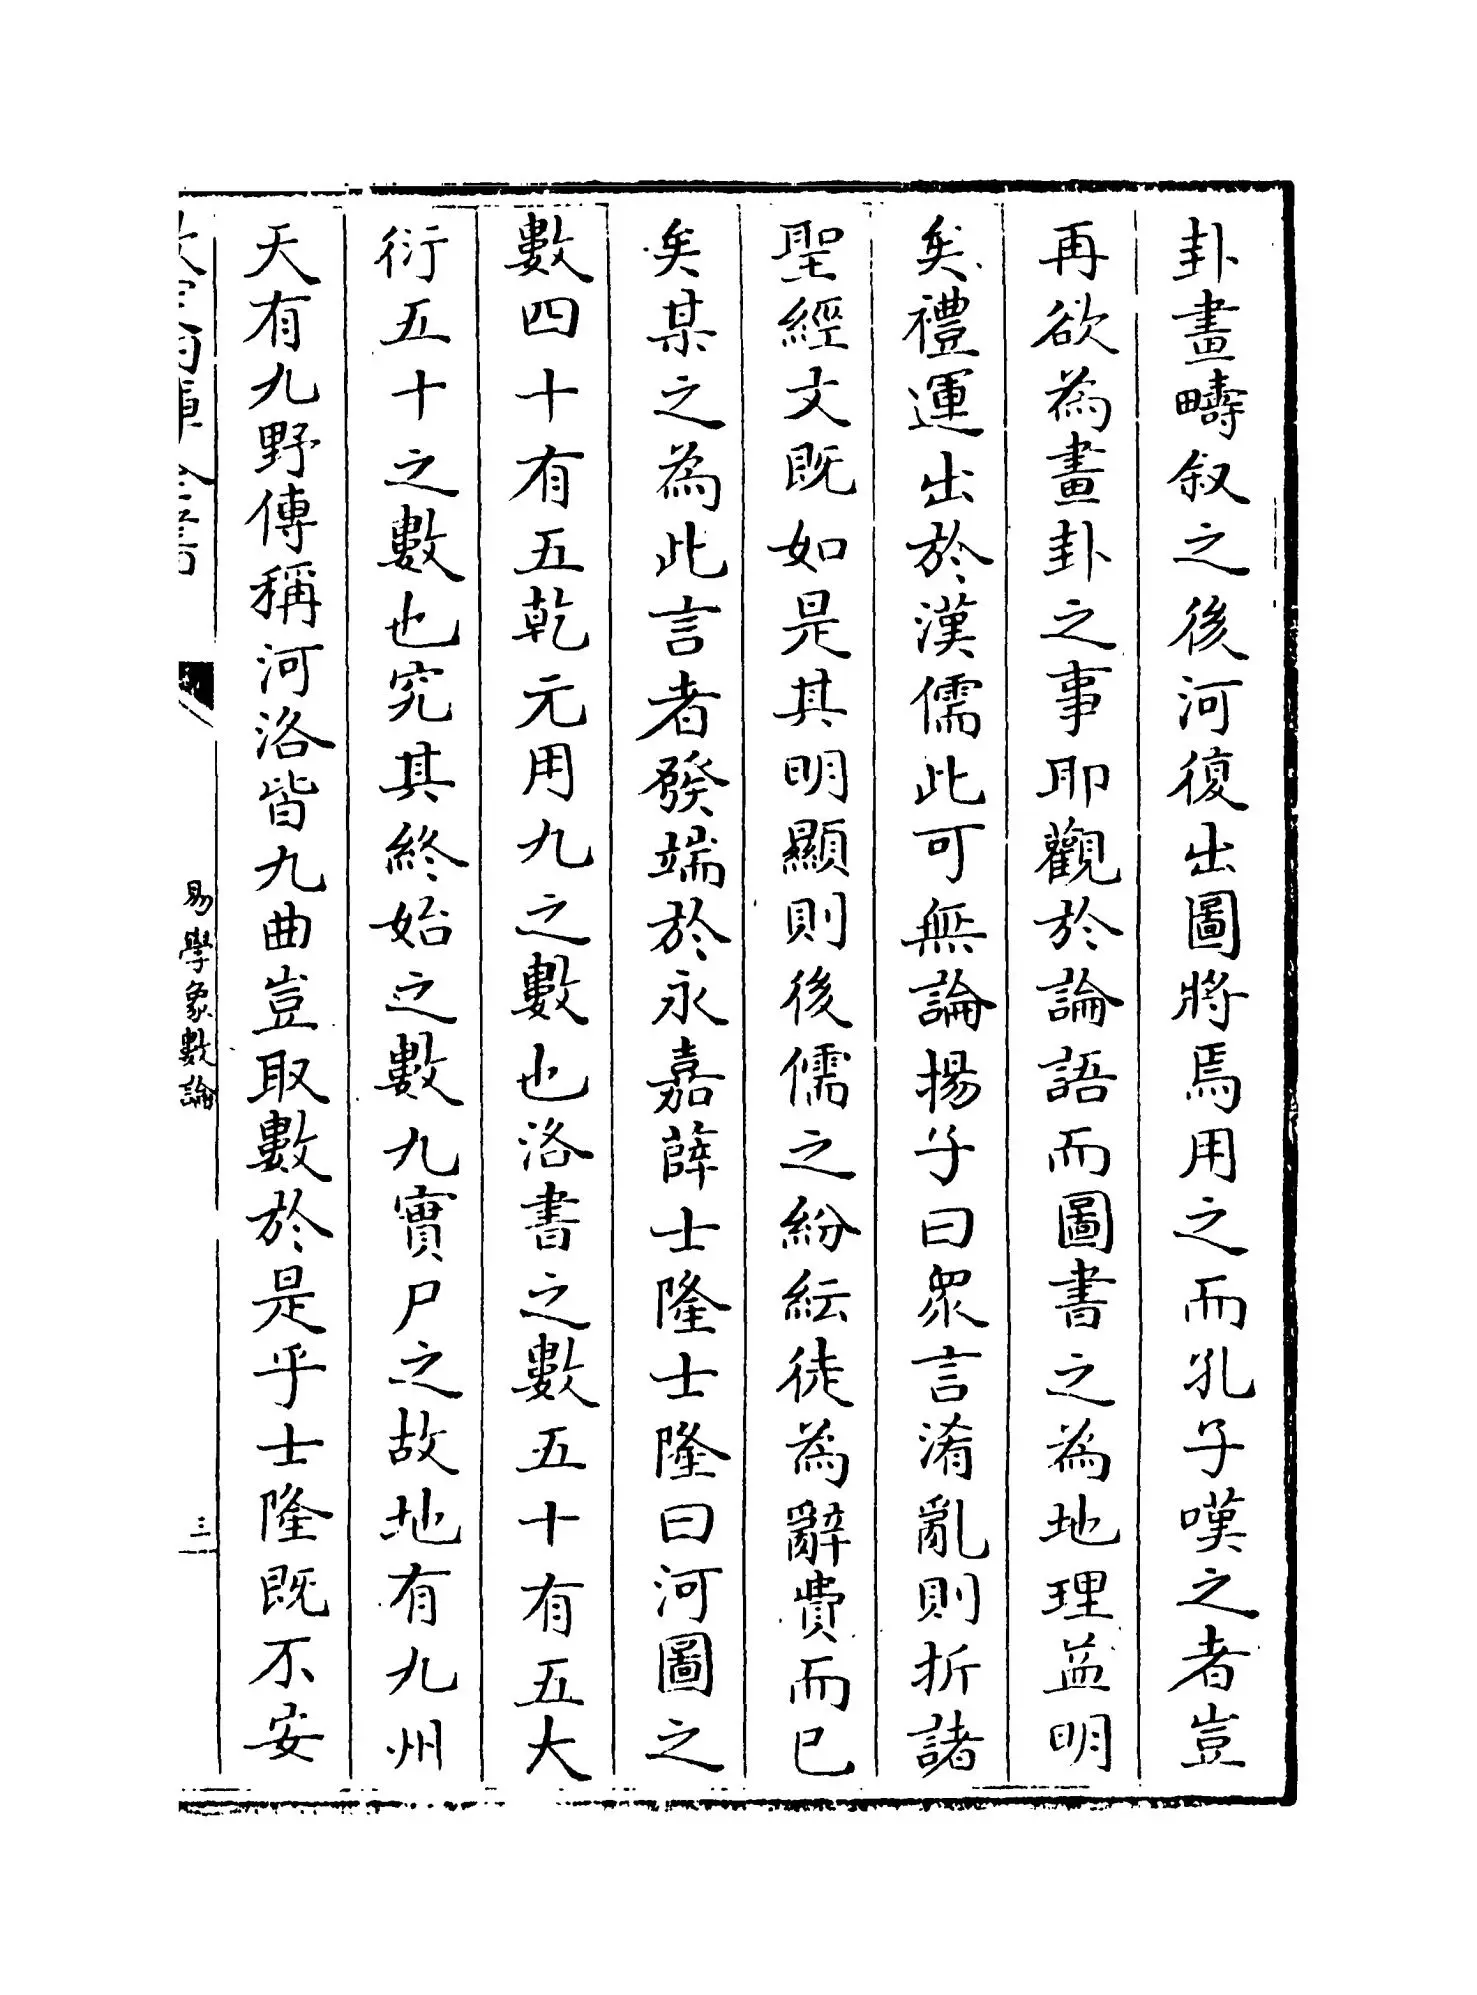 卦畫疇叙之後河復出圖將焉用之而孔子嘆之者豈
再欲為畫卦之事耶觀於論語而圖書之為地理益明
矣禮運出於漢儒此可無論揚子曰衆言淆亂則折諸
聖經文既如是其明顯則後儒之紛紜徒為辭費而已
矣某之為此言者發端於永嘉薛士隆士隆曰河圖之
數四十有五乾元用九之數也洛書之數五十有五大
衍五十之數也究其終始之數九實尸之故地有九州
天有九野傳稱河洛皆九曲豈取數於是乎士隆既不安
易學象數論
三